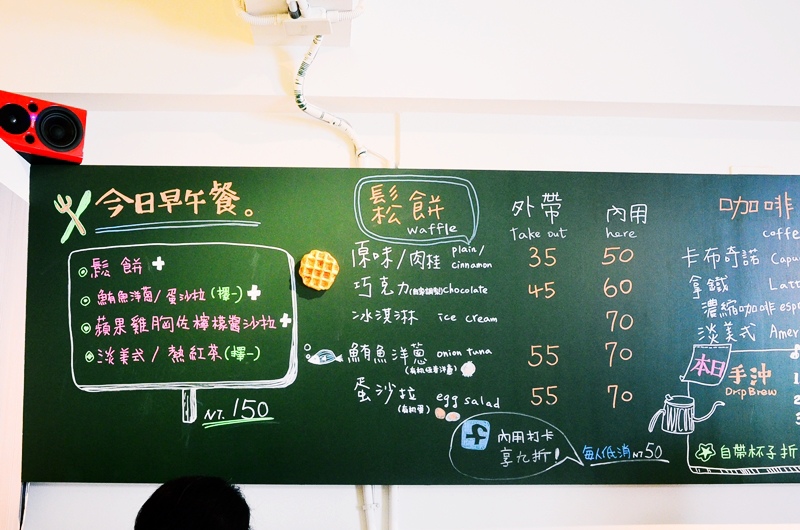 今日早午餐。
鬆餅 +
鮪魚洋蔥/蛋沙拉(擇一) +
蘋果雞胸佐檸檬醬沙拉 +
淡美式/熱紅茶(擇一)
NT. 150
鬆餅 waffle
外帶 內用
Take out here
原味/肉桂 plain/cinnamon 35 50
巧克力 Chocolate 45 60
冰淇淋 ice cream 70
鮪魚洋蔥 onion tuna 55 70
蛋沙拉 egg salad 55 70
f 內用打卡
享九折!
每人低消NT50
咖啡
coffe
卡布奇諾 Capu
拿鐵 Latt
濃縮咖啡 esp
淡美式 Amer
本日
手沖
Drip Brew
自帶杯子折